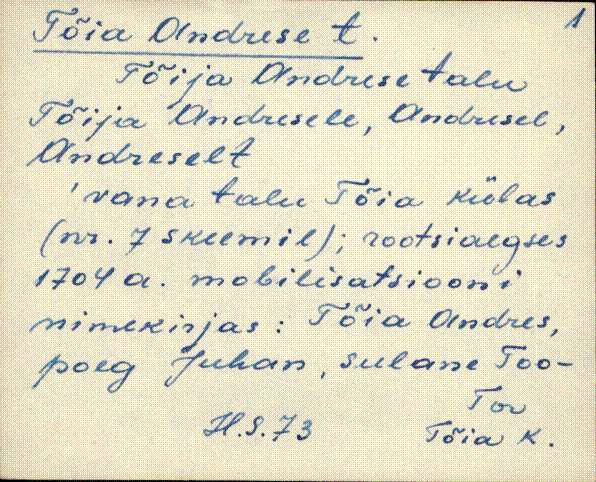 1
Tõia Andrese t.
Tõija Andrese talu
Tõija Andresele, Andresel,
Andreselt
'vana talu Tõia külas
(nr. 7 skeemil); rootsiaegses
1704 a. mobilisatsiooni
nimekirjas: Tõia Andres,
poeg Juhan, sulane Too-
Tor
H.S.73 Tõia k.